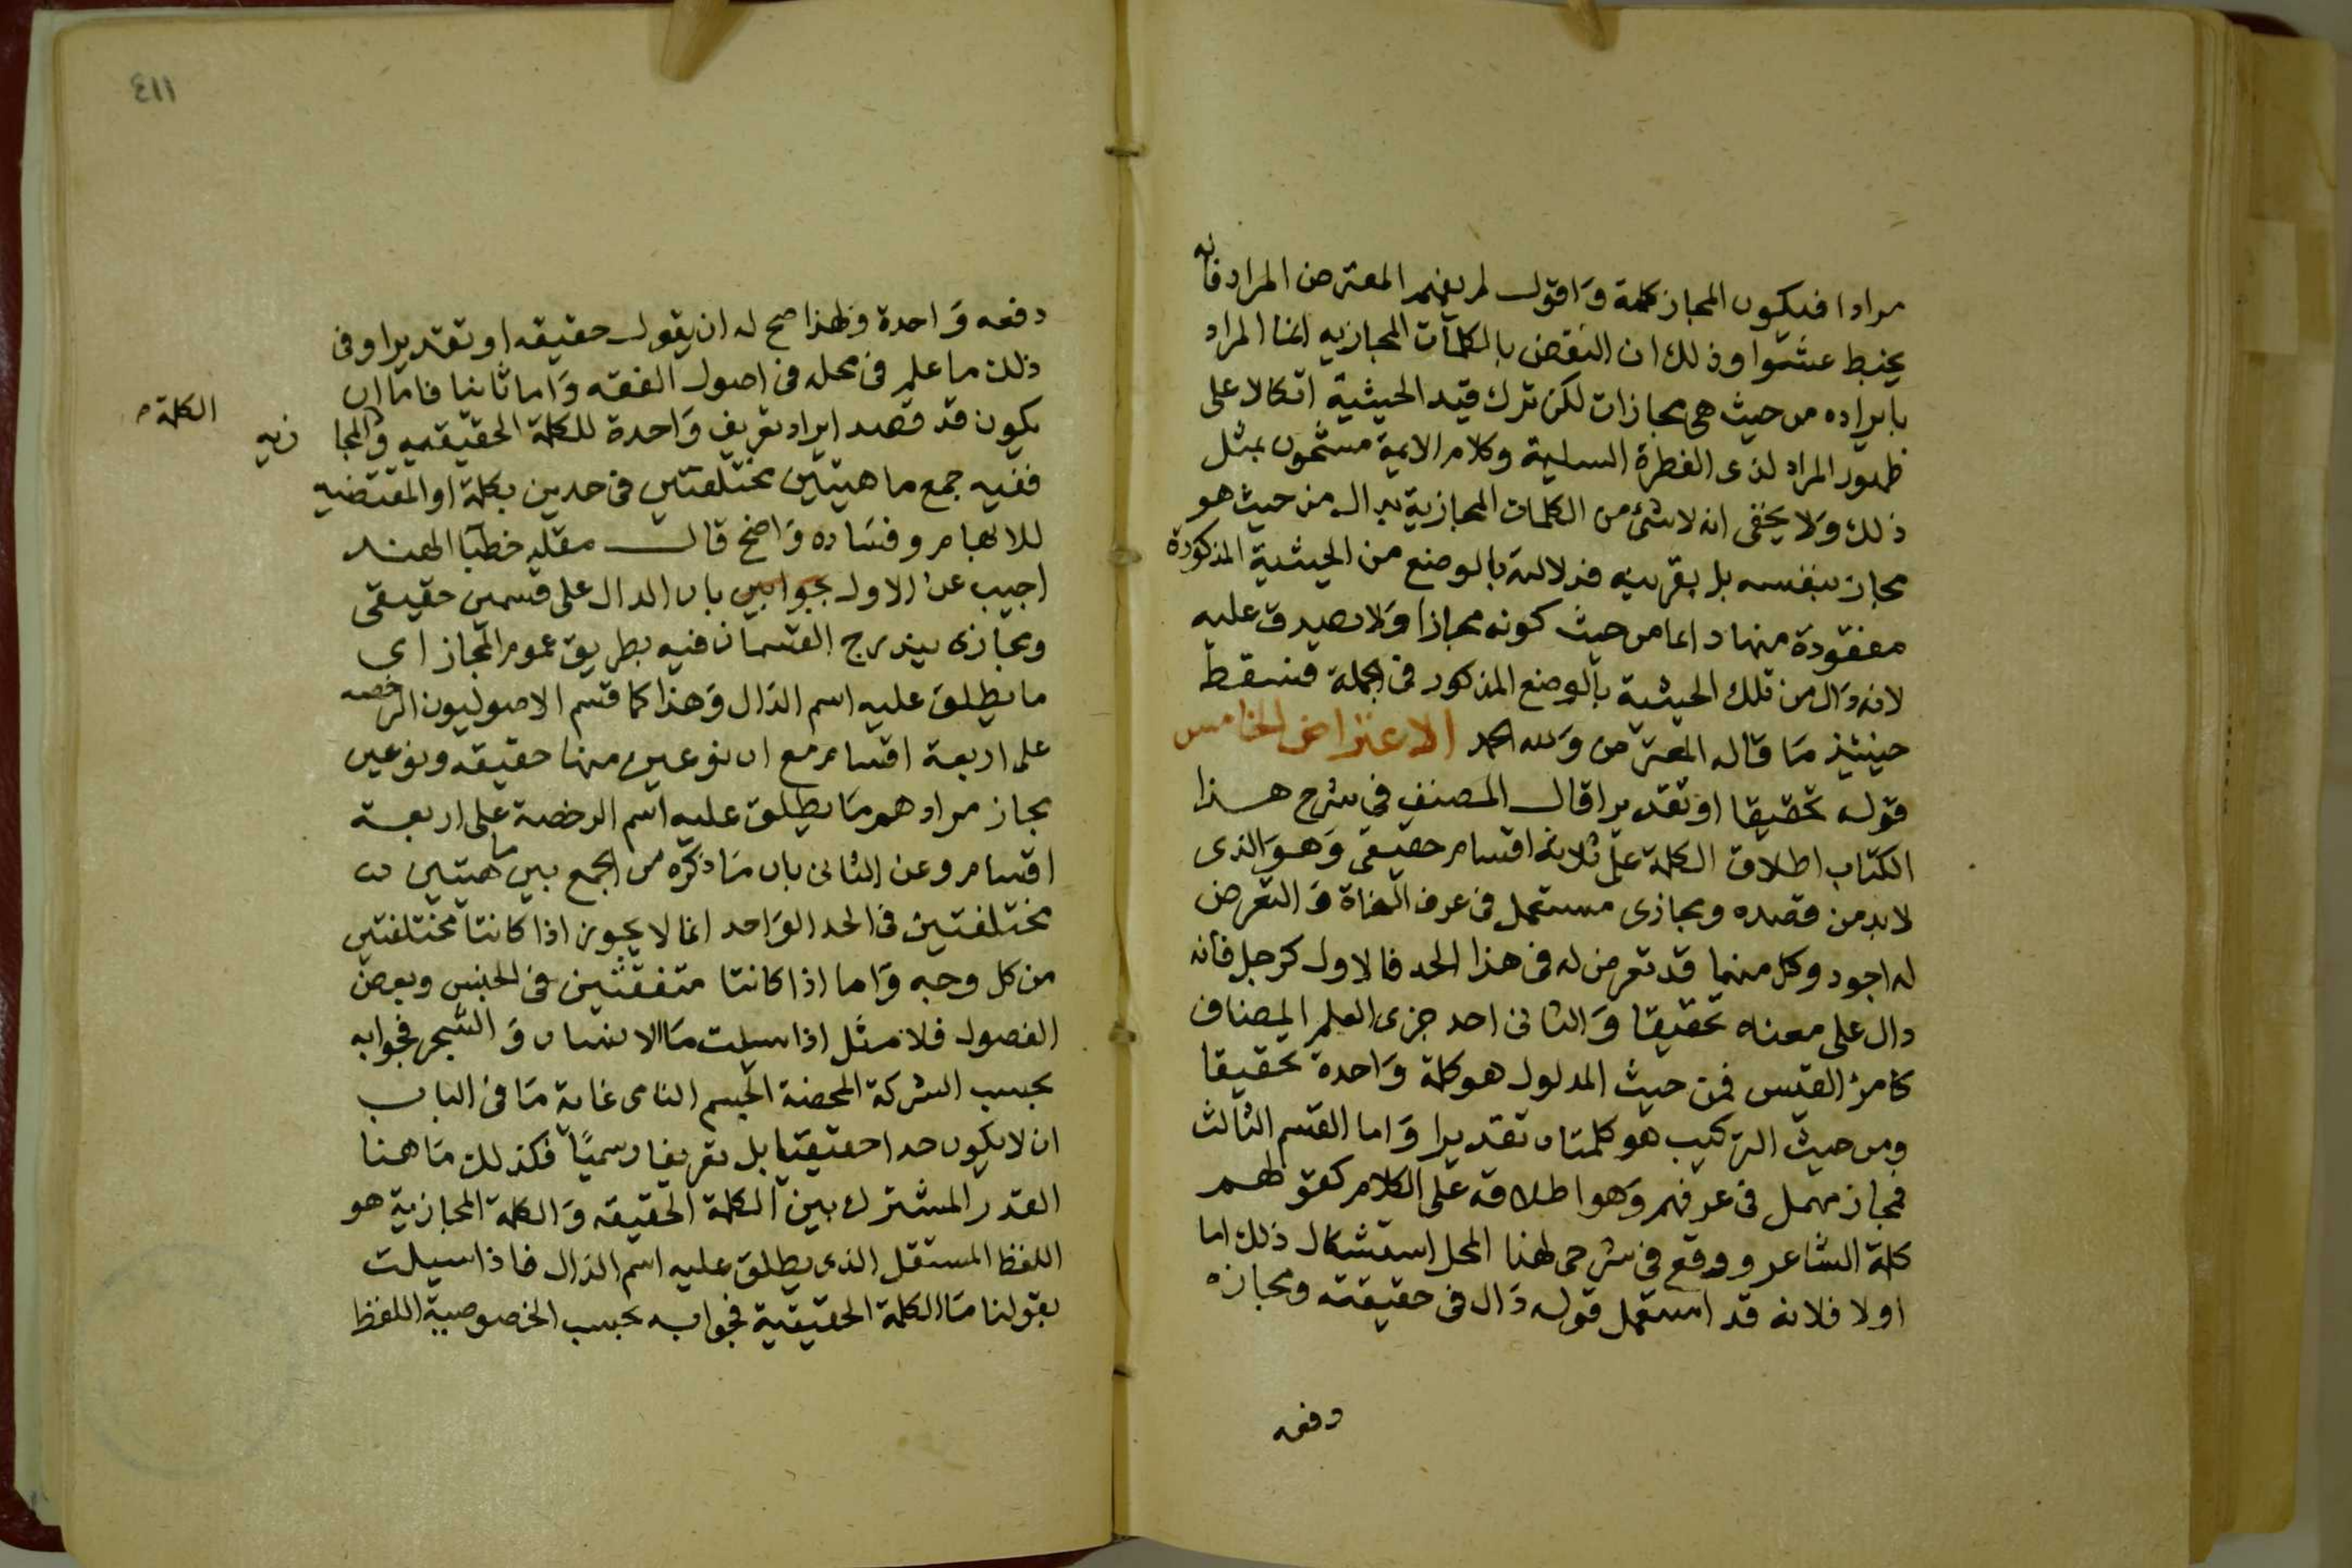 مرادا فيكون المجاز كلمة وَاقول لم يفهم المعترض المراد فانه
يخبط عشوا وذلك ان النقض بالكلمات المجازيه انما المراد
بايراده من حيث هى مجازات لكن ترك قيد الحيثية اتكالا على
ظهور المراد لذى الفطرة السليمة وكلام الايمة مشحون بمثل
ذلك وَلا يخفى انه لا شئ من الكلمات المجازية بدال من حيث هو
مجاز بنفسه بل بقرينه فدلالته بالوضع من الحيثية المذكورة
مفقودة منها دائما من حيث كونه مجازا وَلا يصدق عليه
لانه دَال من تلك الحيثية بالوضع المذكور فى الجملة فسقط
حينئيذ مَا قاله المعترض وَلله الحمد الاعتراض الخامس
قوله تحقيقا او تقديرا قال المصنف فى شرح هذا
الكتاب اطلاق الكلمة على ثلاثة اقسام حقيقى وَهوَ الذى
لا بد من قصده ومجازى مستعمل فى عرف النحاة وَ التعرض
له اجود وكل منهما قد تعرض له فى هذا الحد فالاول كرجل فانه
دال على معناه تحقيقا وَالثانى احد جزى العلم المضاف
كامرئ القيس فمن حيث المدلول هو كلمة وَاحدة تحقيقا
ومن حيث التركيب هو كلمتان تقديرا وَاما القسم الثالث
فمجاز مهمل فى عرفهم وَهو اطلاقه على الكلام كقولهم
كلمة الشاعر ووقع فى شرحى لهذا المحل استشكال ذلك اما
اولا فلانه قد استعمل قوله دَال فى حقيقته ومجازه
دفعه
٤١١
دفعه وَاحدة ولهذا صح له ان يقول حقيقه او تقديرا وفى
ذلك ما علم فى محله فى اصول الفقه وَاما ثانيا فاما ان
يكون قد قصد ايراد تعريف وَاحدة للكلمة الحقيقيه وَالمجا زيه
الكلمة م
ففيه جمع ماهيتين مختلفتين فى حدين بكلمة او المقتضيه
للابهام وفسَاده وَاضح قال مقلد خطبَا الهند
اجيب عن الاول بجوابين بان الدال على قسمين حقيقى
ومجازى يندرج القسمان فيه بطريق عموم المجاز اى
ما يطلق عليه اسم الدَال وَهذا كما قسم الاصوليون الرخصه
على اربعة اقسام مع ان نوعين منها حقيقه ونوعين
مجاز مرادهم مَا يطلق عليه اسم الرخصة على اربعة
اقسام وعن الثانى بان مَا ذكره من الجمع بين ماهيتين
مختلفتين فى الحد الوَاحد انما لا يجوز اذا كانتا مختلفتين
من كل وجه وَاما اذا كانتا متفقتين فى الجنس وبعض
الفصول فلا مثل اذا سيلت مَا الانسان وَ الشجر فجوابه
بحسب الشركة المحضة الجسم النامى غاية مَا فى الباب
ان لا يكون حدا حقيقيا بل تعريفا رسميًا فكذلك مَا هنا
القدر المشترك بين الكلمة الحقيقه وَالكلمة المجازية هو
اللفظ المستقل الذى يطلق عليه اسم الدَال فاذا سيلت
بقولنا مَا الكلمة الحقيقية فجوابه بحسب الخصوصية اللفظ